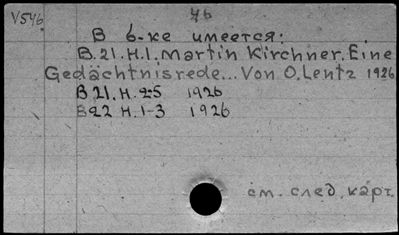 V546
76
В б-ке имеется:
B.21.H.1. Martin Kirchner. Eine
Gedächtnisrede... Von O. Lentz 1926
B 21. H. 2-5 1926
B22 H. 1-3 1926
см. след. карт.